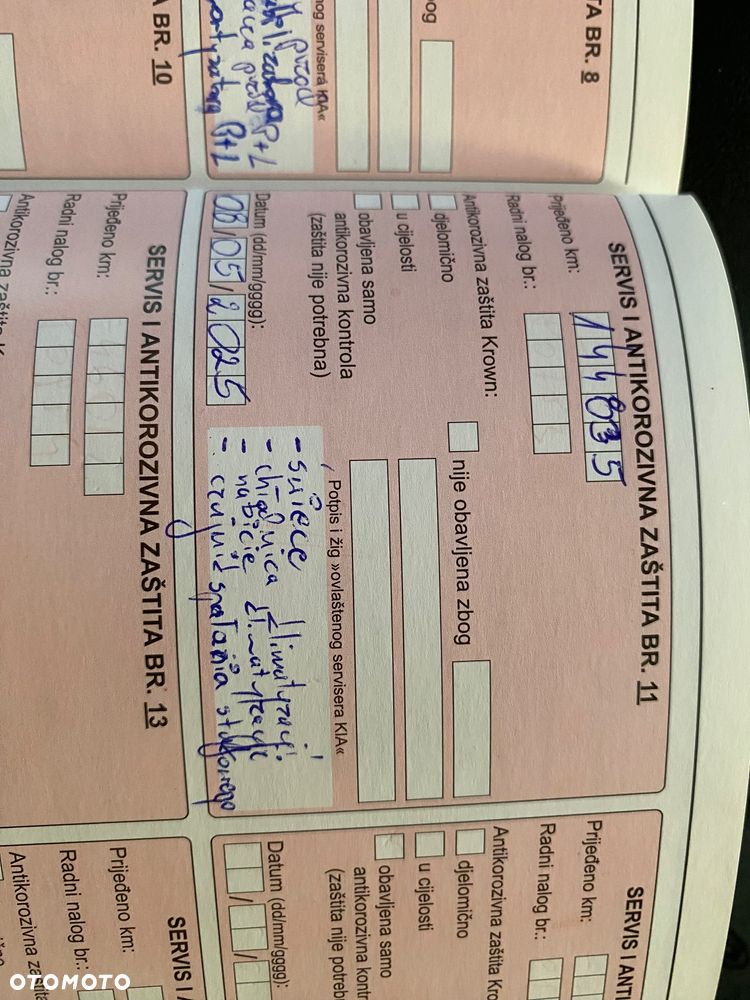 TA BR. 8
bog
nog servisera KIA«
przód
P+L
P+L
A BR. 10
SERVIS I ANTIKOROZIVNA ZAŠTITA BR. 11
Prijeđeno km: 144835
Radni nalog br.:
Antikorozivna zaštita Krown:
djelomično
nije obavljena zbog
u cijelosti
obavljena samo
antikorozivna kontrola
(zaštita nije potrebna)
Potpis i žig »ovlaštenog servisera KIA«
Datum (dd/mm/gggg):
08/05/2025
- świece
- chłodnica klimatyzacji
- nabicie klimatyzacji
- czujnik spalania stukowego
SERVIS I ANTIKOROZIVNA ZAŠTITA BR. 13
Prijeđeno km:
Radni nalog br.:
Antikorozivna zaštita K
SERVIS I ANT
Prijeđeno km:
Radni nalog br.:
Antikorozivna zaštita Kro
djelomično
u cijelosti
obavljena samo
antikorozivna kont
(zaštita nije potreb
Datum (dd/mm/gggg):
SERVIS I A
Prijeđeno km:
Radni nalog br.:
Antikorozivna zašt
OTOMOTO